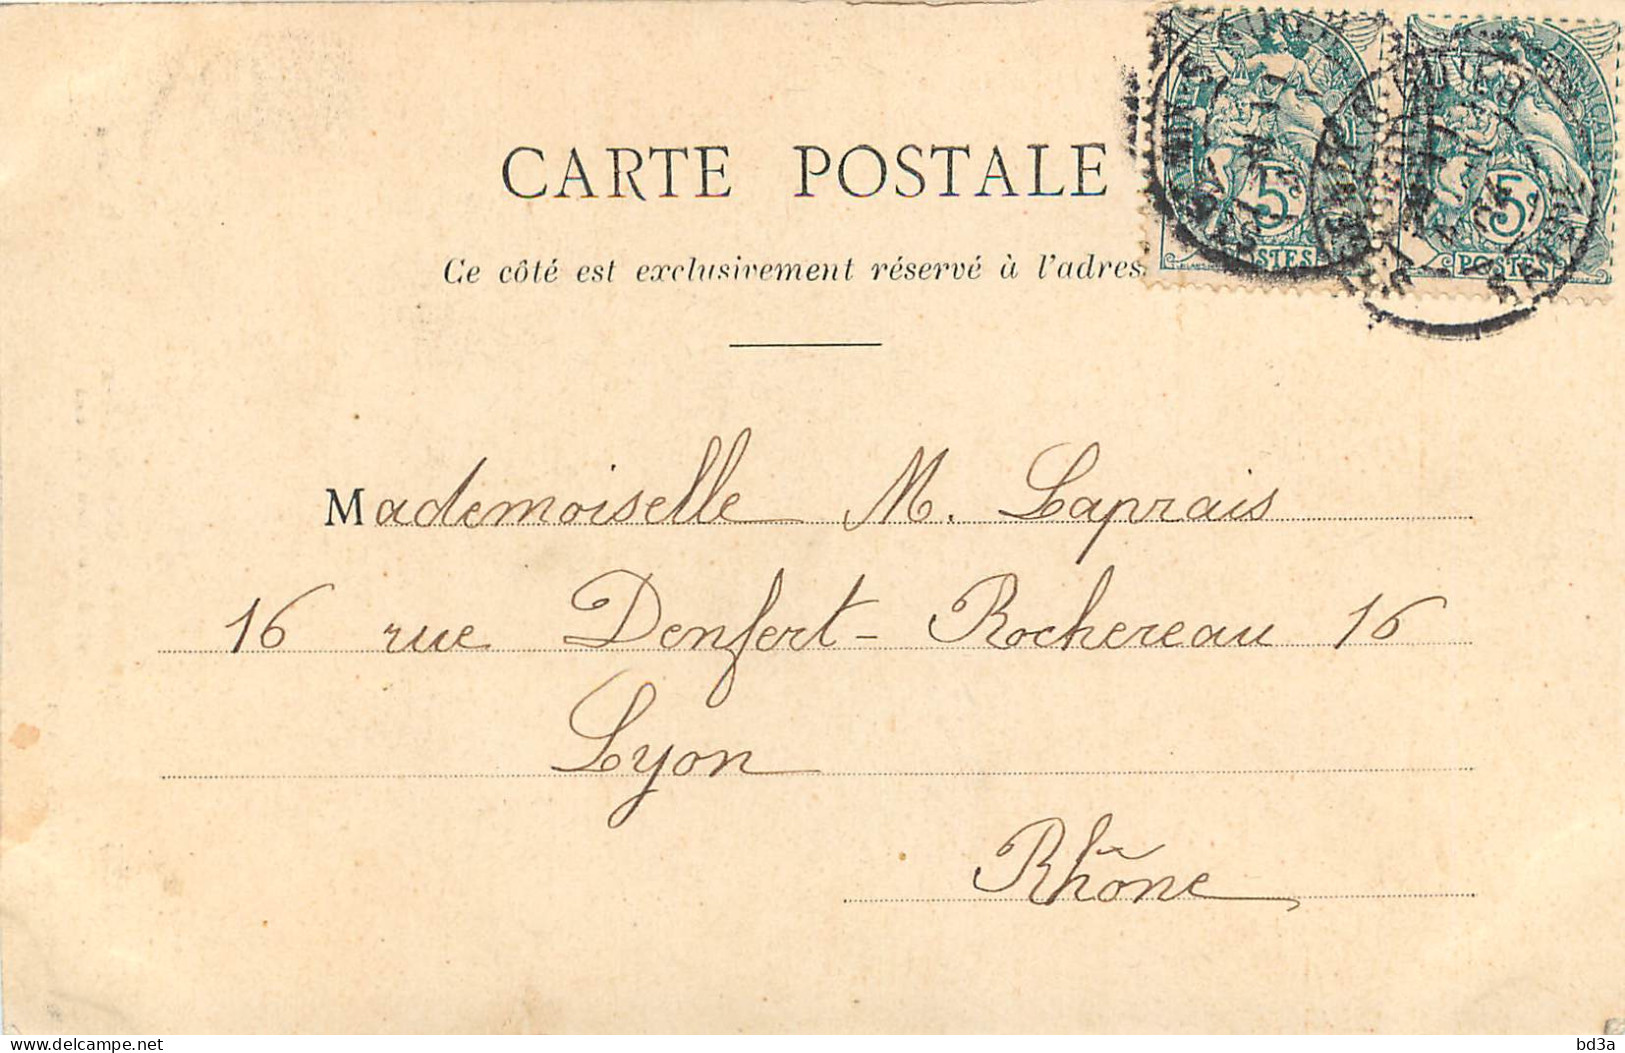 CARTE POSTALE
Ce côté est exclusivement réservé à l'adres
FRANÇAISE
5c 5c
POSTES POSTES
Mademoiselle M. Laprais
16 rue Denfert-Rochereau 16
Lyon
Rhône
delcampe.net
bd3a